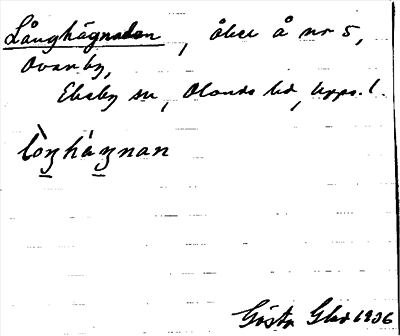 Långhägnaden, åker å nr 5,
Ovanby,
Ekeby sn, Olands hd, Upps. l.
lòŋhàŋnan
Gösta Glad 1936